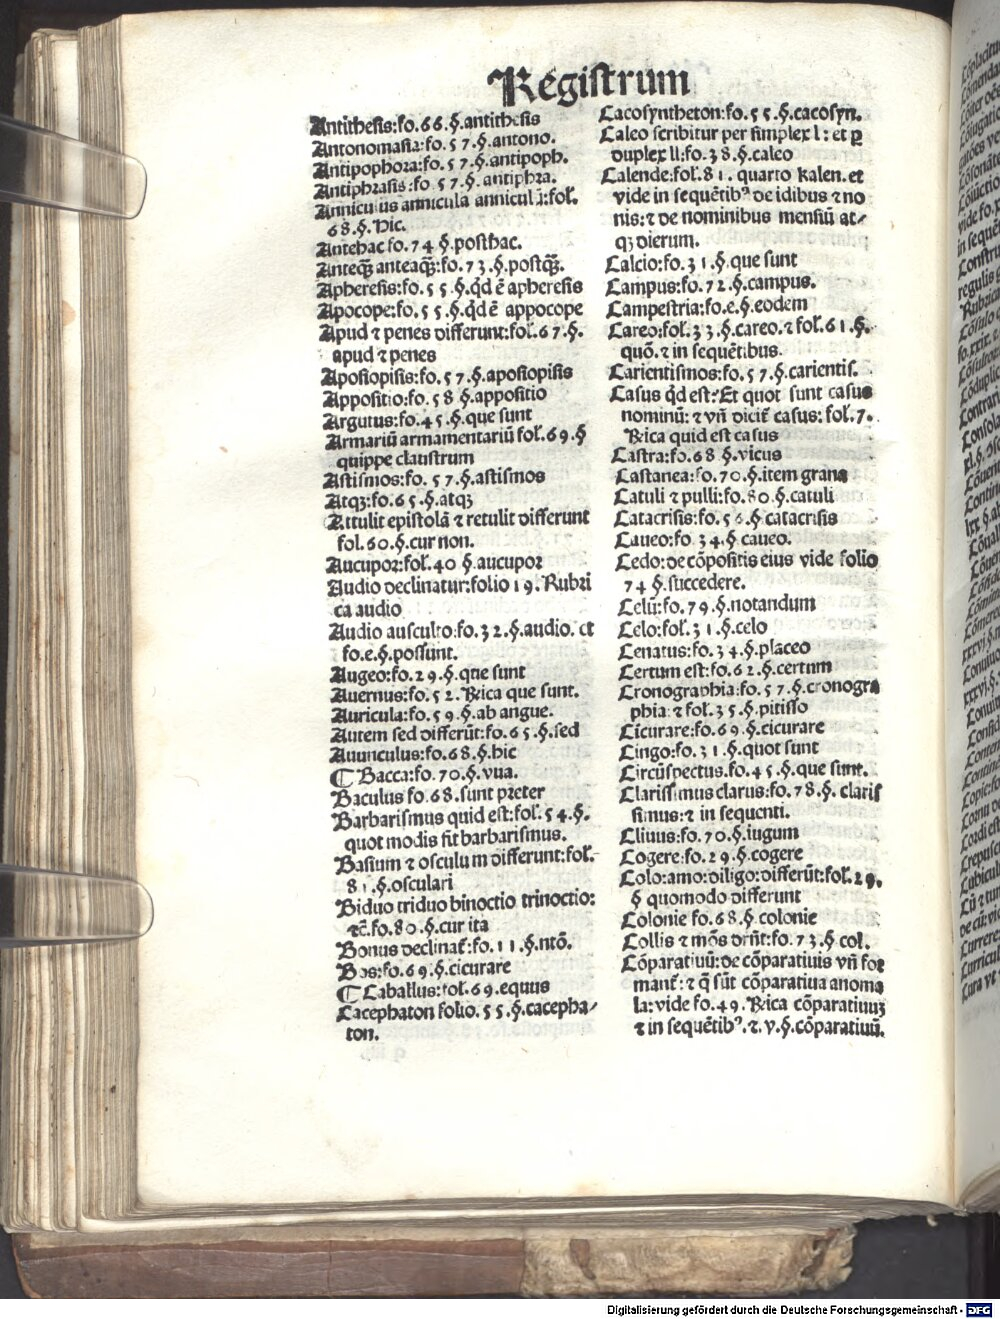 Registrum
Antithesis:fo.66.§.antithesis
Antonomasia:fo.57.§.antono.
Antipophora:fo.57.§.antipoph.
Antiphrasis:fo 57.§.antiphra.
68.§.hic.
Antehac fo.74 §.posthac.
Anteqꝫ anteaqꝫ:fo.73.§.postqꝫ.
Apheresis:fo.55.§.qd ē apheresis
Apocope:fo.55.§.qd ē appocope
Apud ⁊ penes differunt:fol.67.§.
apud ⁊ penes
Aposiopisis:fo.57.§.aposiopisis
Appositio:fo.58 §.appositio
Argutus:fo.45.§.que sunt
Armariū armamentariū fol.69.§
quippe claustrum
Astismos:fo.57.§.astismos
Atqꝫ:fo.65.§.atqꝫ
Attulit epistolā ⁊ retulit differunt
fol.60.§.cur non.
Aucupor:fol.40 §.aucupor
Audio declinatur:folio 19.Rubri
ca audio
Audio ausculto:fo.32.§.audio. et
fo.e.§.possunt.
Augeo:fo.29.§.que sunt
Auernus:fo.52.Rica que sunt.
Auricula:fo.59.§.ab angue.
Autem sed differūt:fo.65.§.sed
Auunculus:fo.68.§.hic
¶ Bacca:fo.70.§.vua.
Baculus fo.68.sunt preter
Barbarismus quid est:fol.54.§.
quot modis fit barbarismus.
Basium ⁊ osculum differunt:fol.
81.§.osculari
Biduo triduo binoctio trinoctio:
⁊c̄.fo.80.§.cur ita
Bonus declinat̄:fo.11.§.ntō.
Bos:fo.69.§.cicurare
¶ Caballus:fol.69.equus
Cacephaton folio.55.§.cacepha-
ton.
Cacosyntheton:fo.55.§.cacosyn.
Caleo scribitur per simplex l:et ꝑ
duplex ll:fo.38.§.caleo
Calende:fol.81.quarto kalen.et
vide in sequētibꝰ de idibus ⁊ no
nis:⁊ de nominibus mensiū at-
qꝫ dierum.
Calcio:fo.31.§.que sunt
Campus:fo.72.§.campus.
Campestria:fo.e.§.eodem
Careo:fol.33.§.careo.⁊ fol.61.§.
quō.⁊ in sequētibus.
Carientismos:fo.57.§.carientis.
Casus qd est:Et quot sunt casus
nominū:⁊ vn̄ dicit̄ casus:fol.7.
Rica quid est casus
Castra:fo.68 §.vicus
Castanea:fo.70.§.item grana
Catuli ⁊ pulli:fo.80.§.catuli
Catacrisis:fo.56.§.catacrisis
Caueo:fo.34.§.caueo.
Cedo:de cōpositis eius vide folio
74 §.succedere.
Celū:fo.79.§.notandum
Celo:fol.31.§.celo
Cenatus:fo.34.§.placeo
Certum est:fo.62.§.certum
Cronographia:fo.57.§.cronogra
phia:⁊ fol.35.§.pitisso
Cicurare:fo.69.§.cicurare
Cingo:fo.31.§.quot sunt
Circūspectus.fo.45.§.que sunt.
Clarissimus clarus:fo.78.§.claris
simus:⁊ in sequenti.
Cliuus:fo.70.§.iugum
Cogere:fo.29.§.cogere
Colo:amo:diligo:differūt:fol.29.
§ quomodo differunt
Colonie fo.68.§.colonie
Collis ⁊ mōs drn̄t:fo.73.§.col.
Cōparatiuū:de cōparatiuis vn̄ for
mant̄:⁊ q̄ sūt cōparatiua anoma
la:vide fo.49.Rica cōparatiuuꝫ
⁊ in sequētibꝰ.⁊.v.§.cōparatiuū.